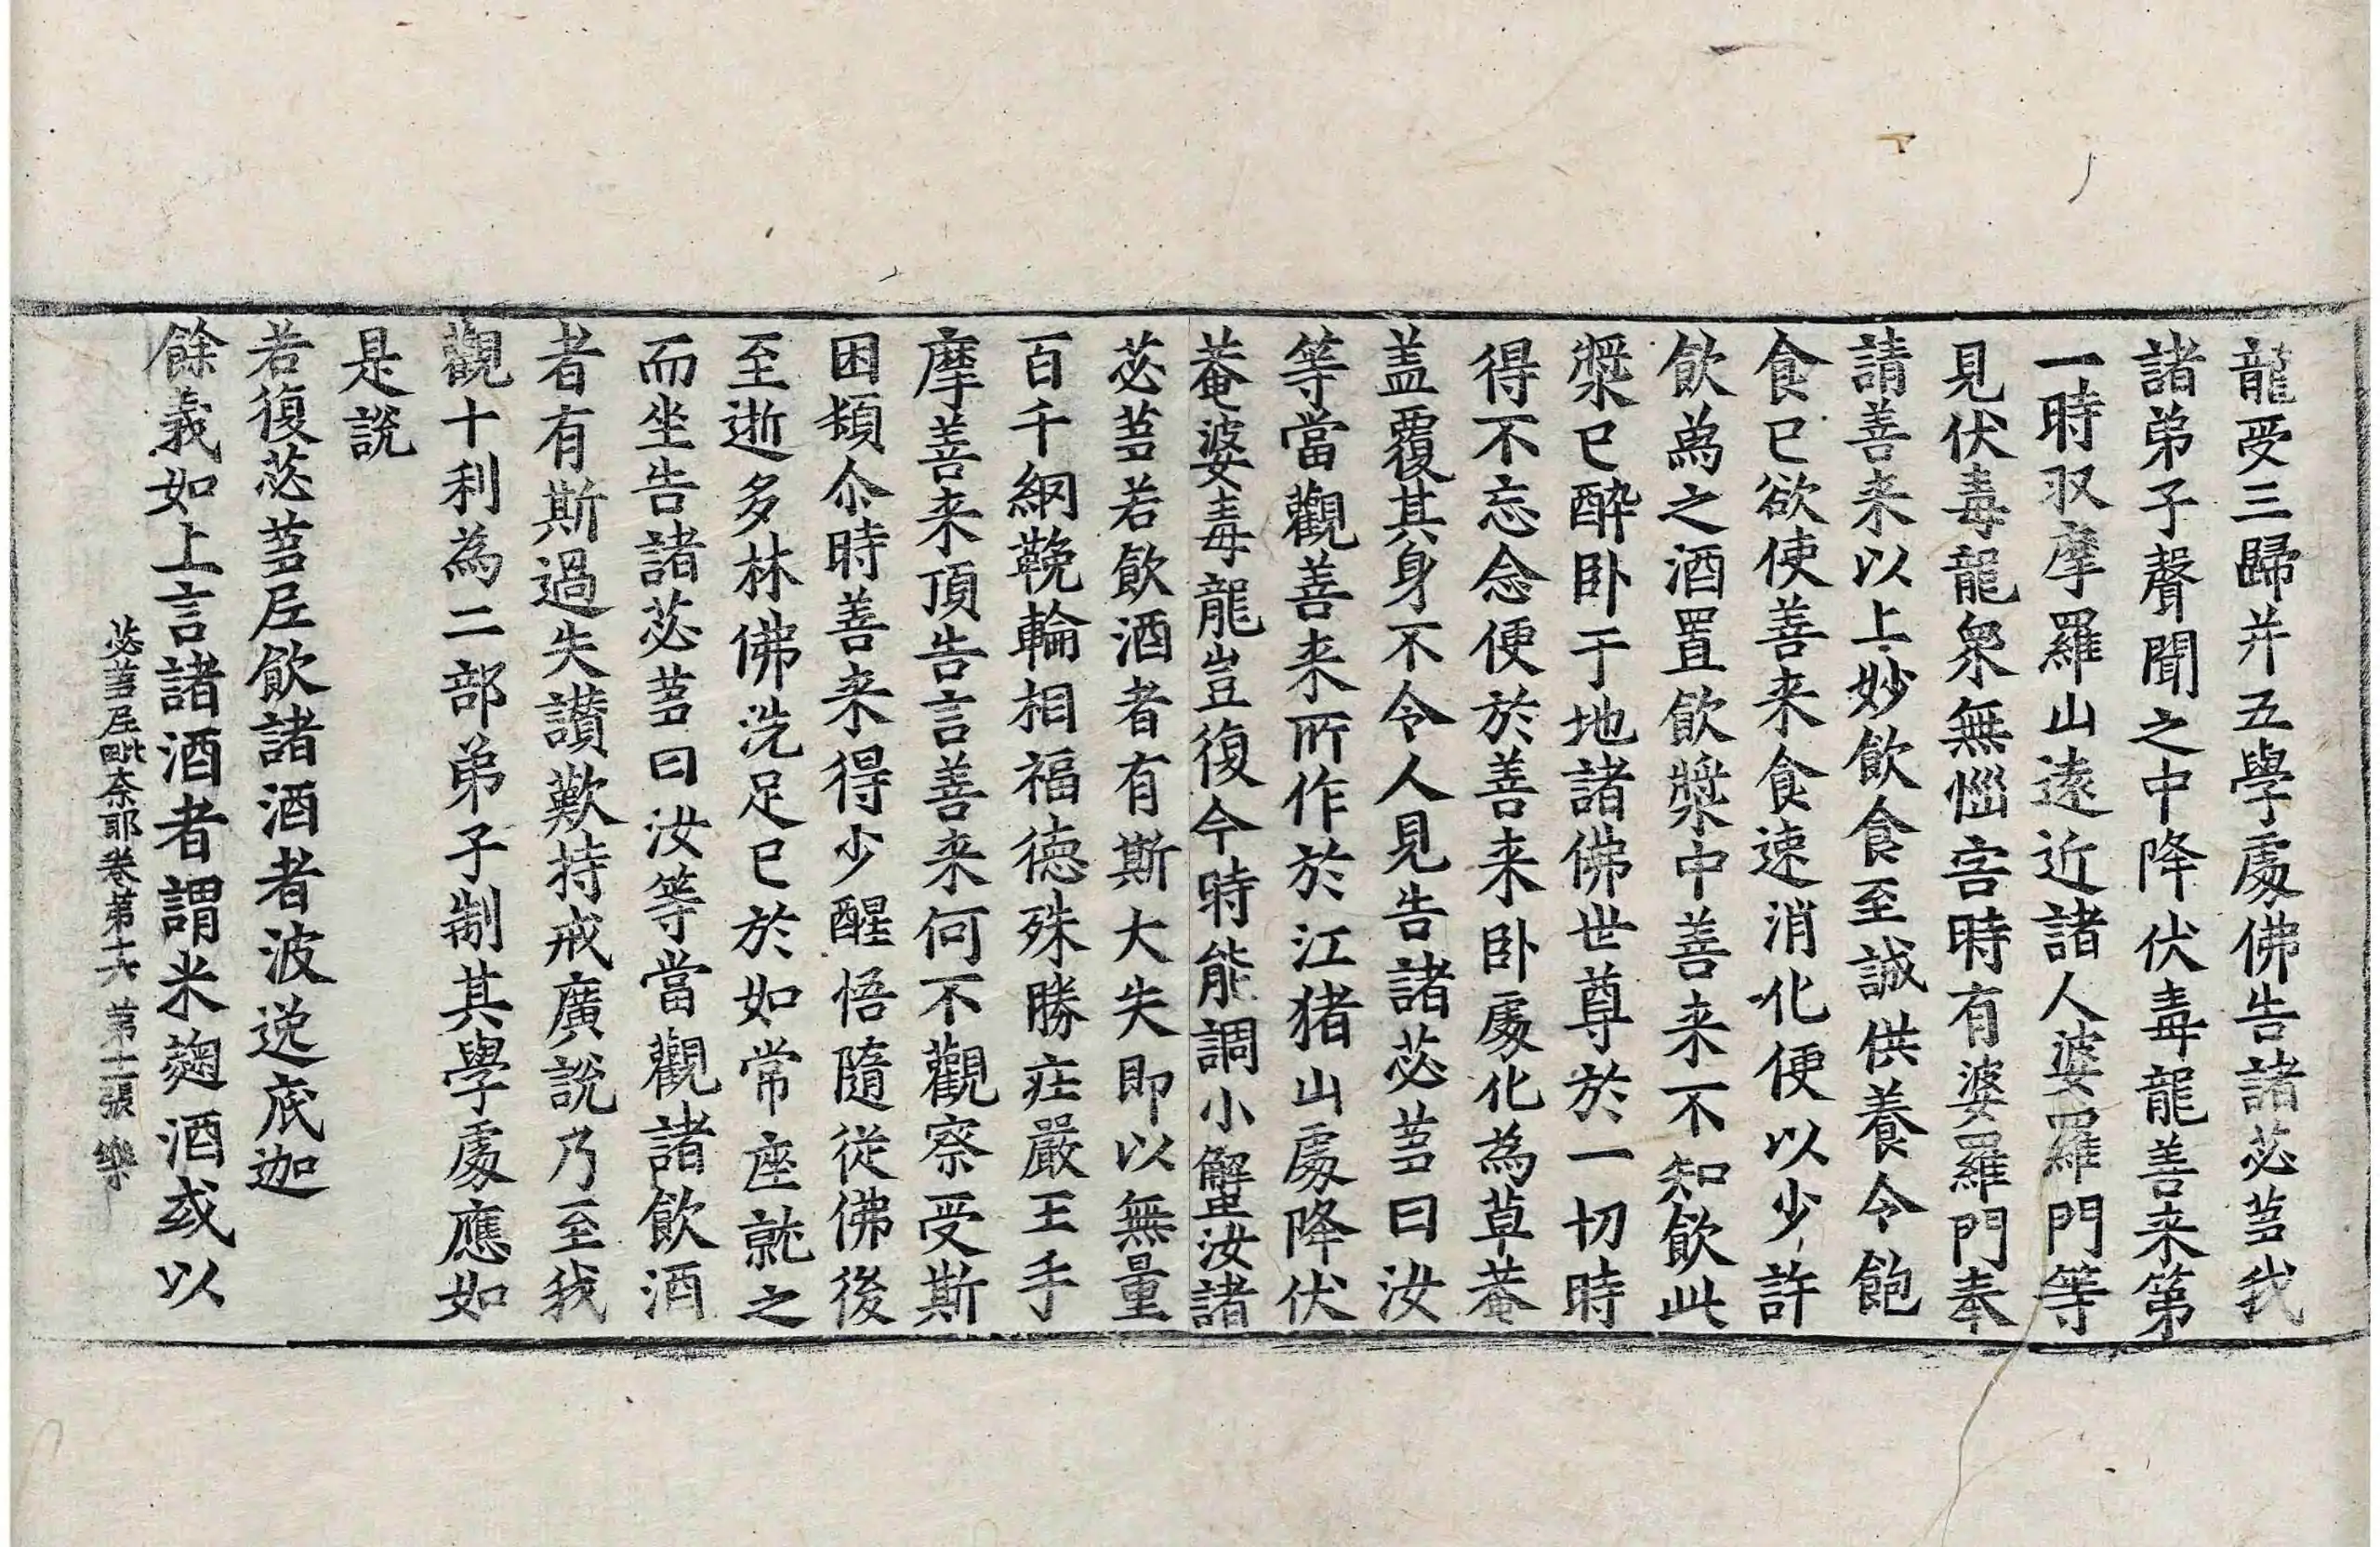 龍受三歸并五學處佛告諸苾芻我
諸弟子聲聞之中降伏毒龍善来第
一時㕛摩羅山遠近諸人婆羅門等
見伏毒龍衆無惱害時有婆羅門奉
請善来以上妙飲食至誠供養令飽
食已欲使善来食速消化便以少許
飲為之酒置飲漿中善来不知飲此
漿已醉卧于地諸佛世尊於一切時
得不忘念便於善来卧處化為草菴
盖覆其身不令人見告諸苾芻曰汝
等當觀善来所作於江猪山處降伏
菴婆毒龍豈復今時能調小蟹汝諸
苾芻若飲酒者有斯大失即以無量
百千網鞔輪相福德殊勝莊嚴王手
摩善来頂告言善来何不觀察受斯
困頓尒時善来得少醒悟隨從佛後
至逝多林佛洗足已於如常座就之
而坐告諸苾芻曰汝等當觀諸飲酒
者有斯過失讃歎持戒廣說乃至我
觀十利為二部弟子制其學處應如
是說
若復苾芻尼飲諸酒者波逸底迦
餘義如上言諸酒者謂米麴酒或以
苾芻尼毗奈耶卷第十六 第十二張 樂